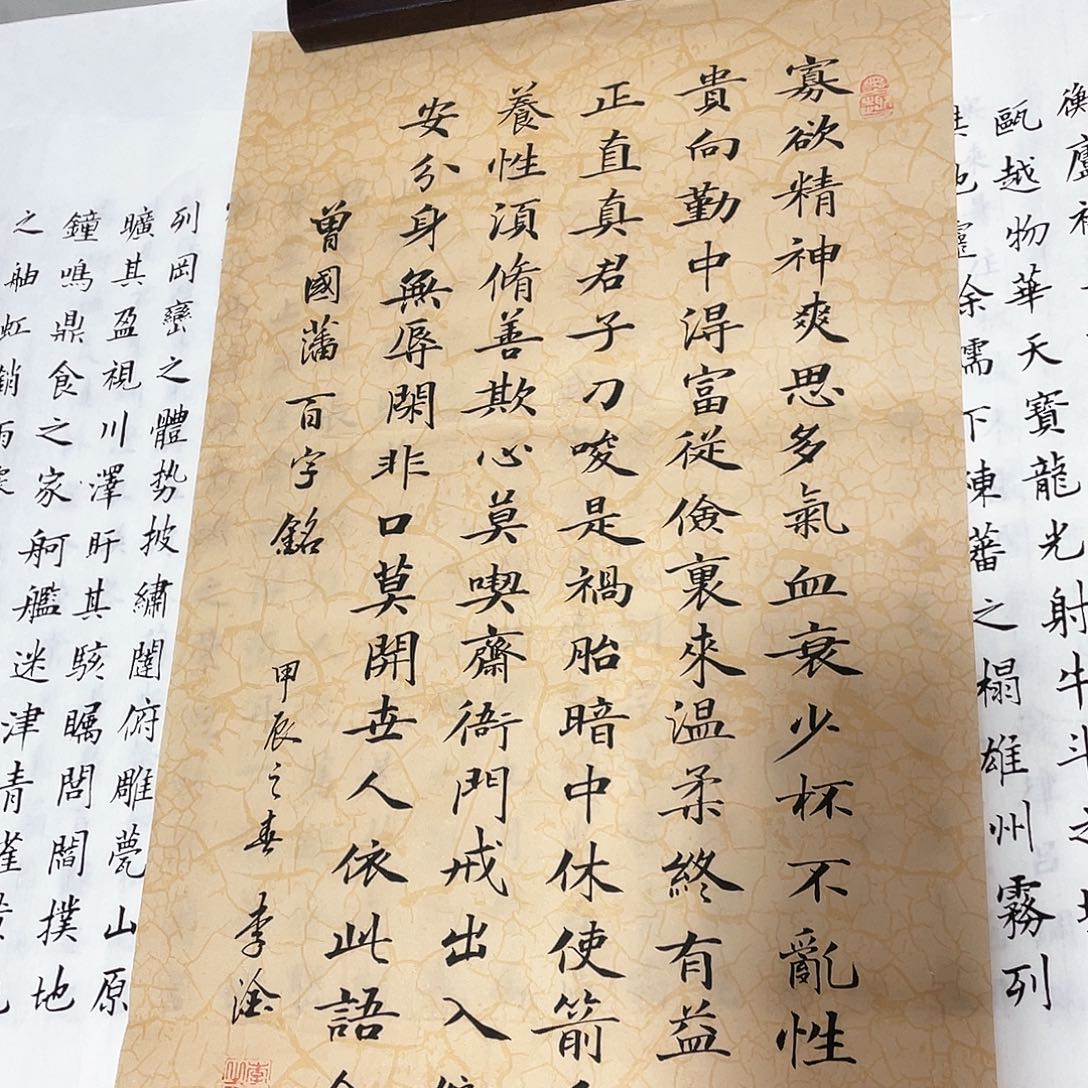 衡廬
甌越物華天寶龍光射牛斗之
下陳蕃之榻雄州霧列
寡欲精神爽思多氣血衰少杯不亂性
貴向勤中淂富從儉裏來温柔終有益
正直真君子刀唆是禍胎暗中休使箭
養性湏脩善欺心莫喫齋衙門戒出入
安分身無辱閑非口莫開世人依此語
曾國藩百字銘
甲辰之春 李淦
列岡巒之體勢披繡闥俯雕甍山原
曠其盈視川澤盱其駭矚閭閻撲地
鐘鳴鼎食之家舸艦迷津青雀
之舳虹銷雨